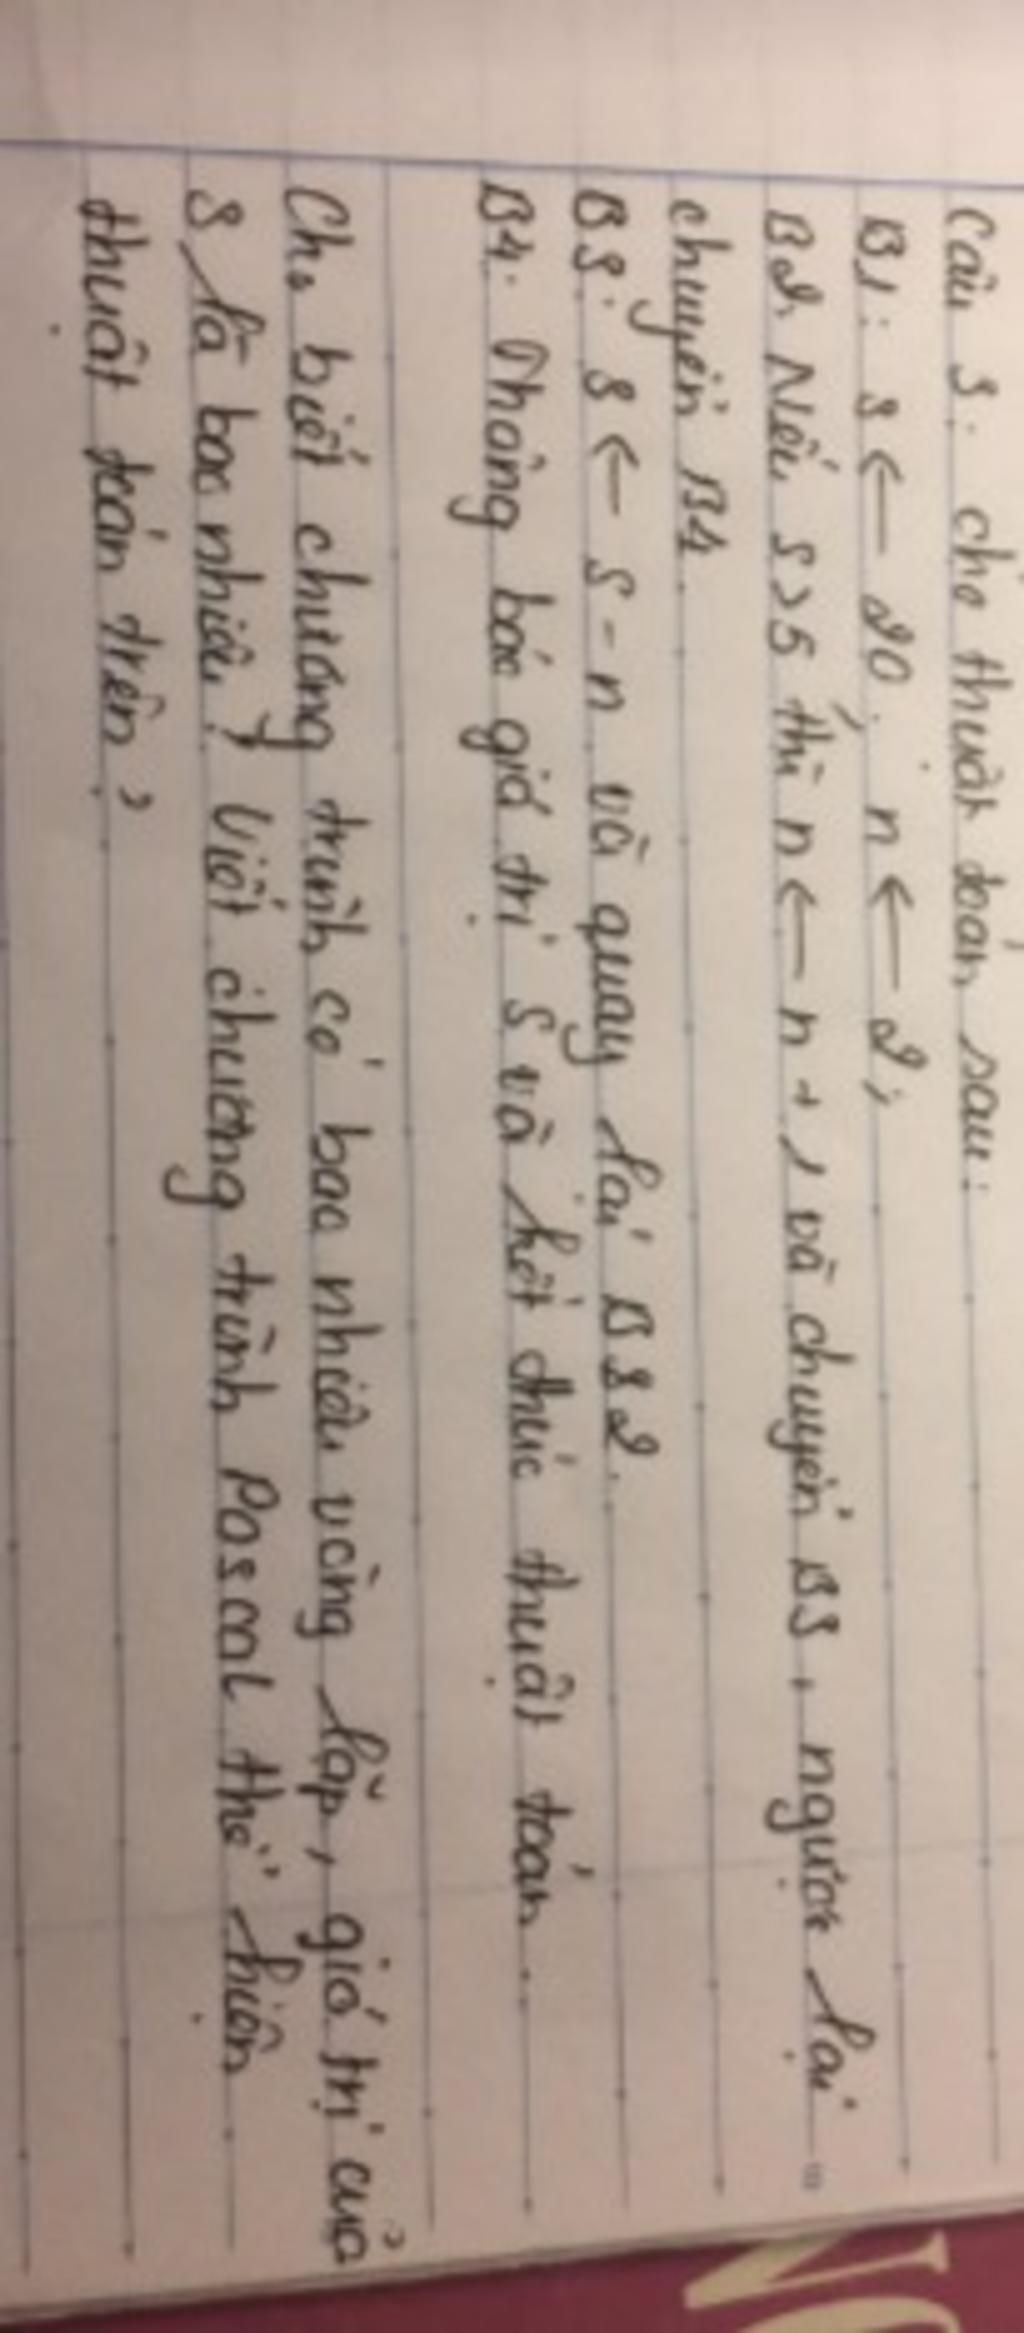 Câu 3: cho thuật toán sau:
B1: S ← 20, n ← 2;
B2: Nếu S>5 thì n ← n + 1 và chuyển B3, ngược lại
chuyển B4.
B3: S ← S - n và quay lại B32.
B4. Thông báo giá trị S và kết thúc thuật toán.
Cho biết chương trình có bao nhiêu vòng lặp, giá trị của
S là bao nhiêu? Viết chương trình Pascal thể hiện
thuật toán trên?